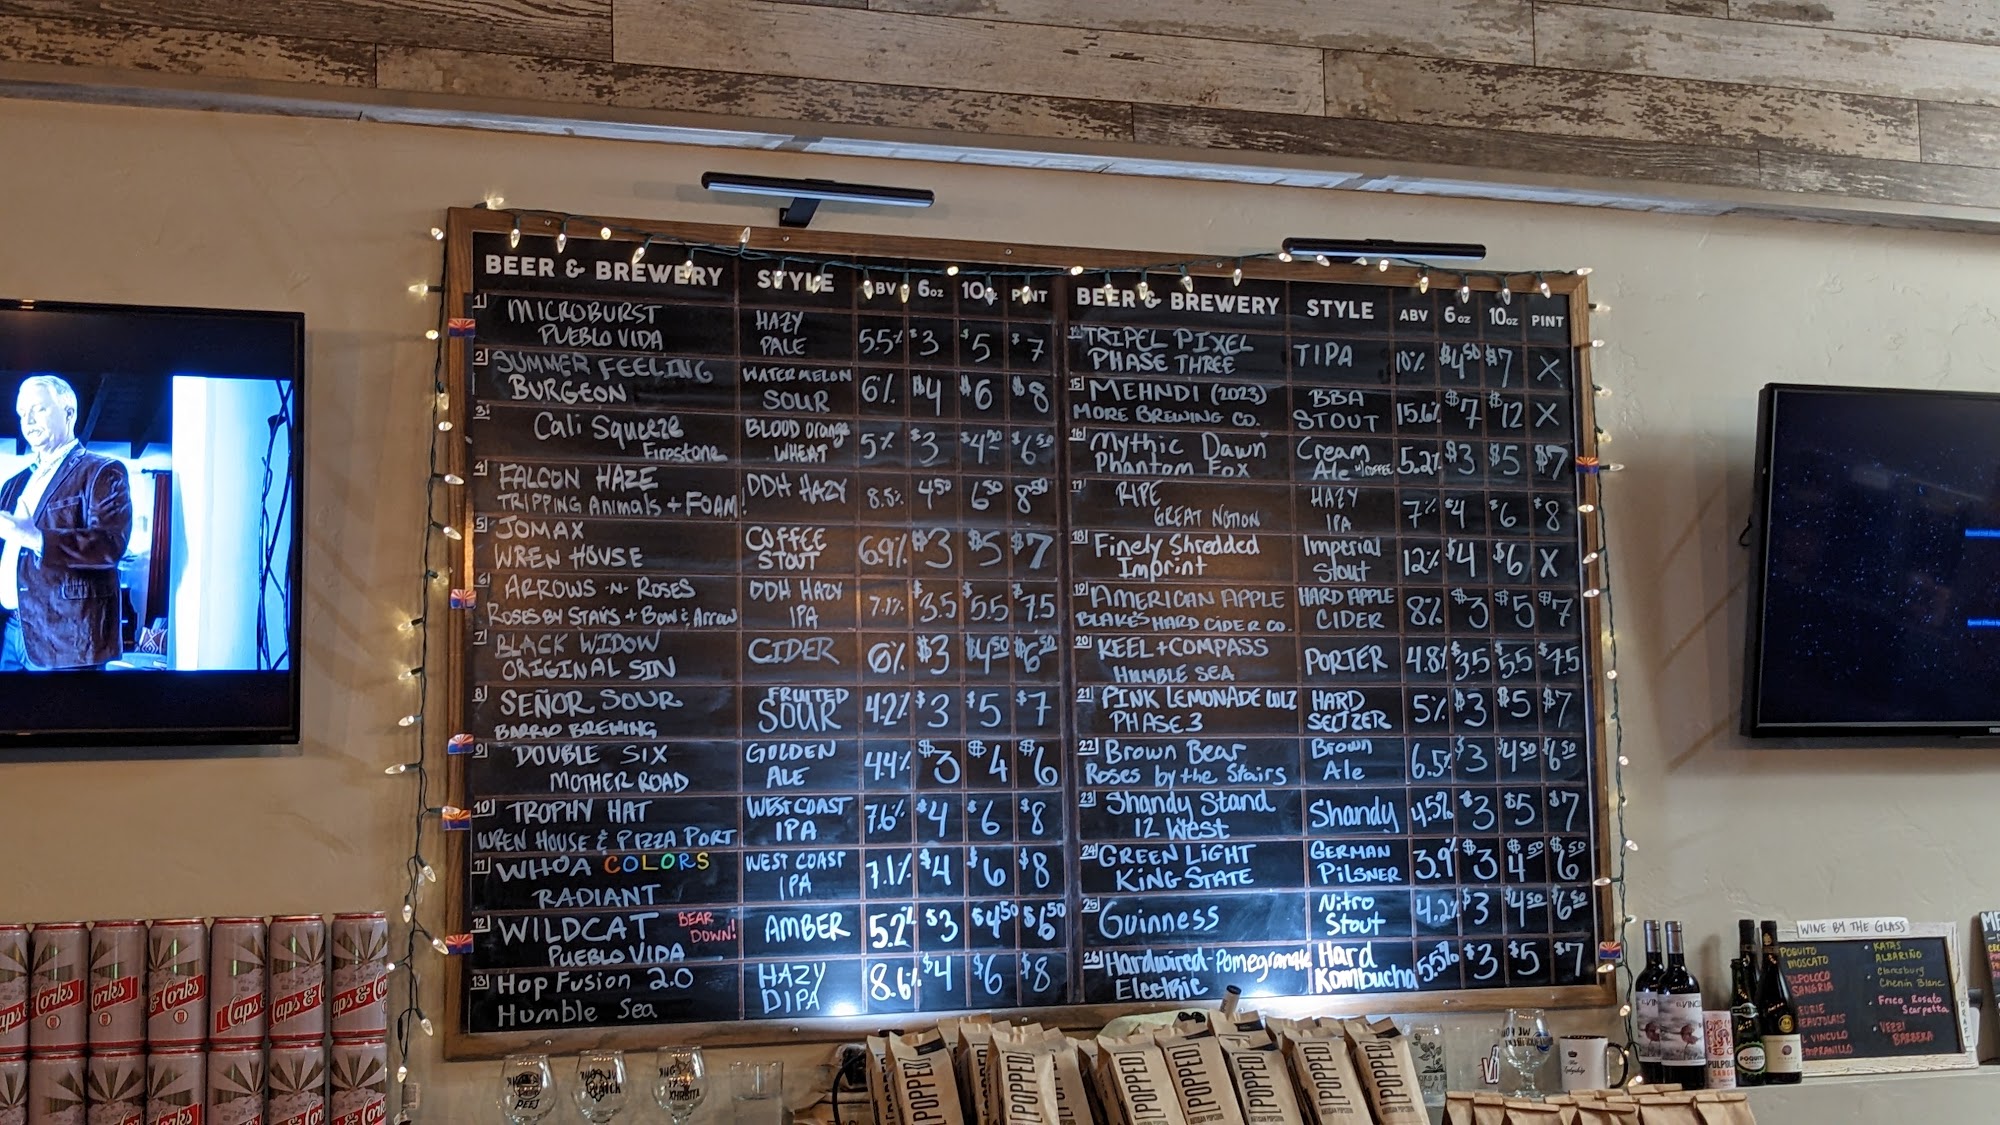 BEER & BREWERY STYLE ABV 6oz 10oz PINT
1 MICROBURST
PUEBLO VIDA
HAZY
PALE
5.5% $3 $5 $7
2 SUMMER FEELING
BURGEON
WATERMELON
SOUR
6% $4 $6 $8
3 Cali Squeeze
Firestone
BLOOD Orange
WHEAT
5% $3 $4.50 $6.50
4 FALCON HAZE
TRIPPING Animals + FOAM
DDH HAZY
8.5% 4.50 6.50 8.50
5 JOMAX
WREN HOUSE
COFFEE
STOUT
6.9% $3 $5 $7
6 ARROWS -N- ROSES
ROSES BY STAIRS + BOW & ARROW
DDH HAZY
IPA
7.1% $3.5 $5.5 $7.5
7 BLACK WIDOW
ORIGINAL SIN
CIDER
6% $3 $4.50 $6.50
8 SEÑOR SOUR
BARRIO BREWING
FRUITED
SOUR
4.2% $3 $5 $7
9 DOUBLE SIX
MOTHER ROAD
GOLDEN
ALE
4.4% $3 $4 $6
10 TROPHY HAT
WREN HOUSE & PIZZA PORT
WEST COAST
IPA
7.6% $4 $6 $8
11 WHOA COLORS
RADIANT
WEST COAST
IPA
7.1% $4 $6 $8
12 WILDCAT BEAR DOWN!
PUEBLO VIDA
AMBER
5.2% $3 $4.50 $6.50
13 Hop Fusion 2.0
Humble Sea
HAZY
DIPA
8.6% $4 $6 $8
BEER & BREWERY STYLE ABV 6oz 10oz PINT
14 TRIPEL PIXEL
PHASE THREE
TIPA
10% $4.50 $7 X
15 MEHNDI (2023)
MORE BREWING CO.
BBA
STOUT
15.6% $7 $12 X
16 Mythic Dawn
Phantom Fox
Cream
Ale w/COFFEE
5.2% $3 $5 $7
17 RIPE
GREAT NOTION
HAZY
IPA
7% $4 $6 $8
18 Finely Shredded
Imprint
Imperial
Stout
12% $4 $6 X
19 AMERICAN APPLE
BLAKE'S HARD CIDER CO.
HARD APPLE
CIDER
8% $3 $5 $7
20 KEEL + COMPASS
HUMBLE SEA
PORTER
4.8% $3.5 $5.5 $7.5
21 PINK LEMONADE LULZ
PHASE 3
HARD
SELTZER
5% $3 $5 $7
22 Brown Bear
Roses by the Stairs
Brown
Ale
6.5% $3 $4.50 $6.50
23 Shandy Stand
12 West
Shandy
4.5% $3 $5 $7
24 GREEN LIGHT
KING STATE
GERMAN
PILSNER
3.9% $3 $4.50 $6.50
25 GUINNESS
Nitro
Stout
4.2% $3 $4.50 $6.50
26 Hardwired-Pomegranate
Electric
Hard
Kombucha
5.5% $3 $5 $7
Corks
Corks
Caps &
Caps & Corks
[POPPED]
[POPPED]
[POPPED]
[POPPED]
[POPPED]
[POPPED]
[POPPED]
WINE BY THE GLASS
POQUITO
MOSCATO
PULPOLOCO
SANGRIA
BEAUJOLAIS
EL VINCULO
TEMPRANILLO
KATAS
ALBARIÑO
Clarksburg
Chenin Blanc
Frico Rosato
Scarpetta
VEZZI
BARBERA